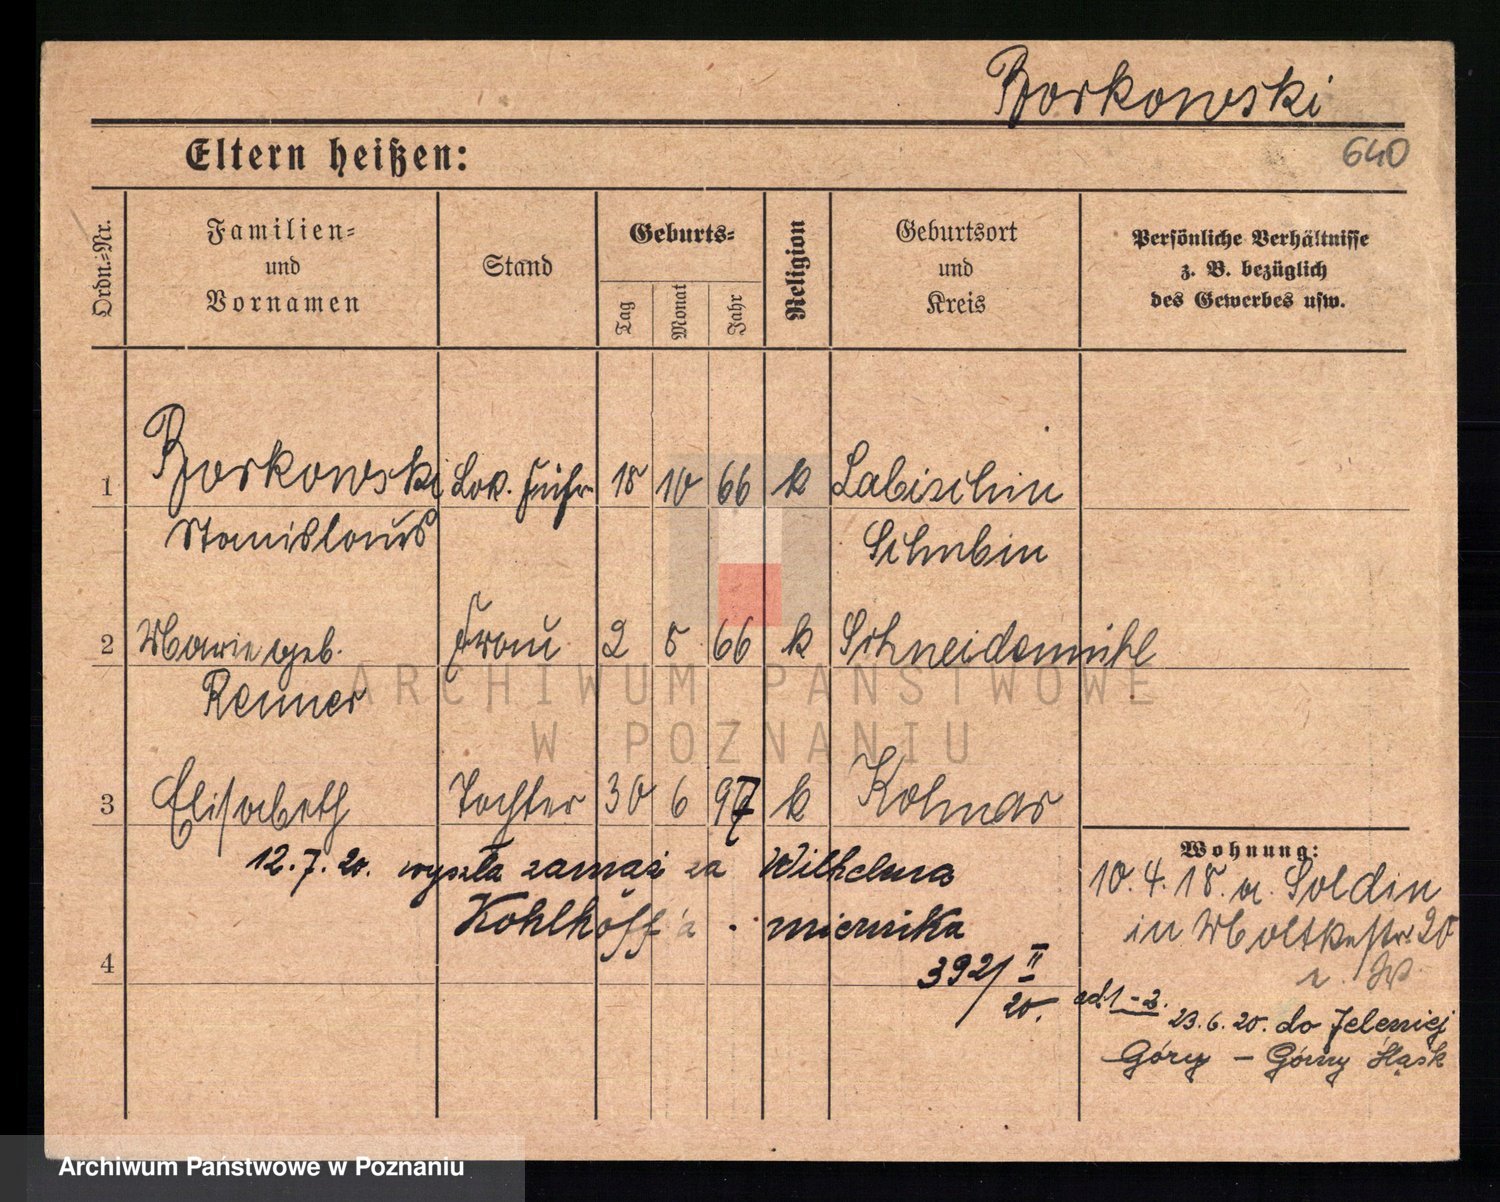 Borkowski
640
Eltern heißen:
Ordn.-Nr.
Familien-
und
Vornamen
Stand
Geburts-
Tag
Monat
Jahr
Religion
Geburtsort
und
Kreis
Persönliche Verhältnisse
z. B. bezüglich
des Gewerbes usw.
1 Borkowski Lok. Führ 18 10 66 k Labischin
Stanislaus Schubin
2 Marie geb. Frau 2 5 66 k Schneidemühl
Renner
3 Elisabeth Tochter 30 6 97 k Kolmar
12.7.20. wyszła zamąż za Wilhelma
Kohlhoff'a . miernika
4
392/II
20.
Wohnung:
10.4.18. a. Soldin
in Moltkestr. 20
ad. 1-2. 23.6.20. do Jeleniej
Góry – Górny Śląsk
ARCHIWUM PAŃSTWOWE
W POZNANIU
Archiwum Państwowe w Poznaniu